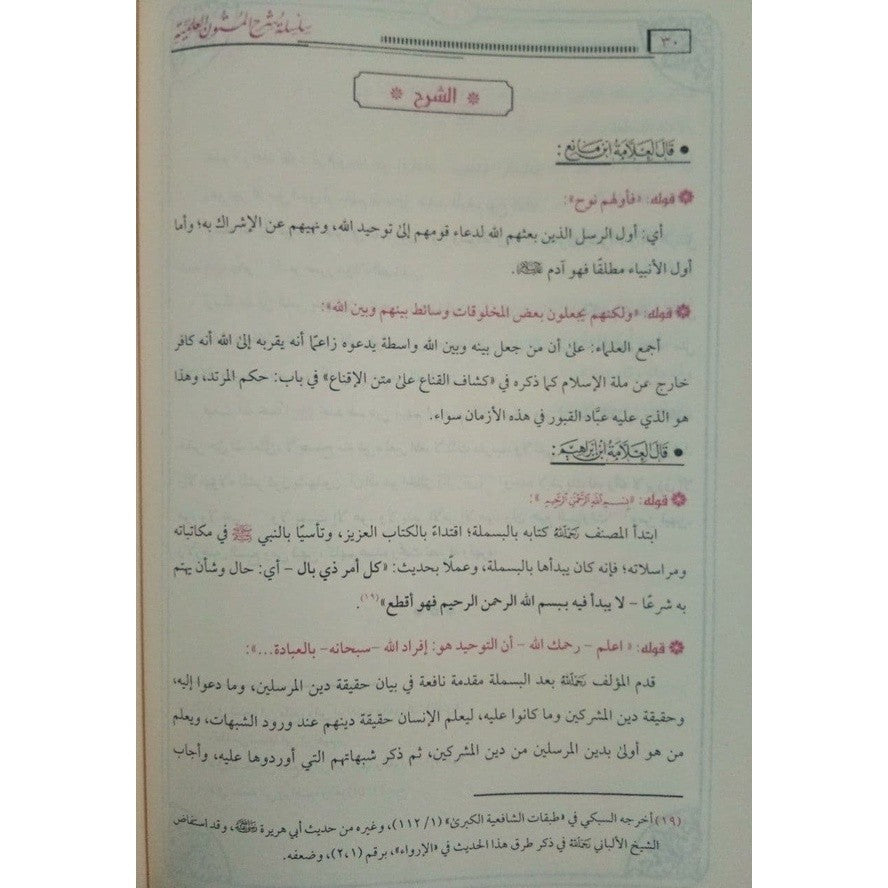 سلسلة شرح المتون العلمية
٣٠
الشرح
• قال العلامة ابن مانع:
قوله: «فأولهم نوح»:
أي: أول الرسل الذين بعثهم الله لدعاء قومهم إلى توحيد الله، ونهيهم عن الإشراك به؛ وأما
أول الأنبياء مطلقًا فهو آدم ﷺ.
قوله: «ولكنهم يجعلون بعض المخلوقات وسائط بينهم وبين الله»:
أجمع العلماء: على أن من جعل بينه وبين الله واسطة يدعوه زاعمًا أنه يقربه إلى الله أنه كافر
خارج عن ملة الإسلام كما ذكره في «كشاف القناع على متن الإقناع» في باب: حكم المرتد، وهذا
هو الذي عليه عبَّاد القبور في هذه الأزمان سواء.
• قال العلامة ابن إبراهيم:
قوله: «بسم الله الرحمن الرحيم»:
ابتدأ المصنف رحمه الله كتابه بالبسملة؛ اقتداءً بالكتاب العزيز، وتأسيًا بالنبي ﷺ في مكاتباته
ومراسلاته؛ فإنه كان يبدأها بالبسملة، وعملًا بحديث: «كل أمر ذي بال – أي: حال وشأن يهتم
به شرعًا – لا يبدأ فيه ببسم الله الرحمن الرحيم فهو أقطع»(١٩).
قوله: «اعلم – رحمك الله – أن التوحيد هو: إفراد الله –سبحانه– بالعبادة...»:
قدم المؤلف رحمه الله بعد البسملة مقدمة نافعة في بيان حقيقة دين المرسلين، وما دعوا إليه،
وحقيقة دين المشركين وما كانوا عليه، ليعلم الإنسان حقيقة دينهم عند ورود الشبهات، ويعلم
من هو أولى بدين المرسلين من دين المشركين، ثم ذكر شبهاتهم التي أوردوها عليه، وأجاب
(١٩) أخرجه السبكي في «طبقات الشافعية الكبرى» (١/ ١١٢)، وغيره من حديث أبي هريرة، وقد استفاض
الشيخ الألباني رحمه الله في ذكر طرق هذا الحديث في «الإرواء»، برقم (٢،١)، وضعفه.